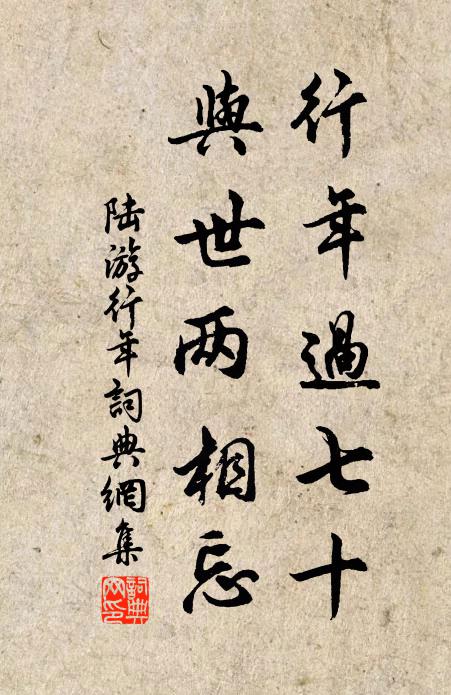 行年過七十
與世两相忘
陆游行年詞典網集
詞典网印